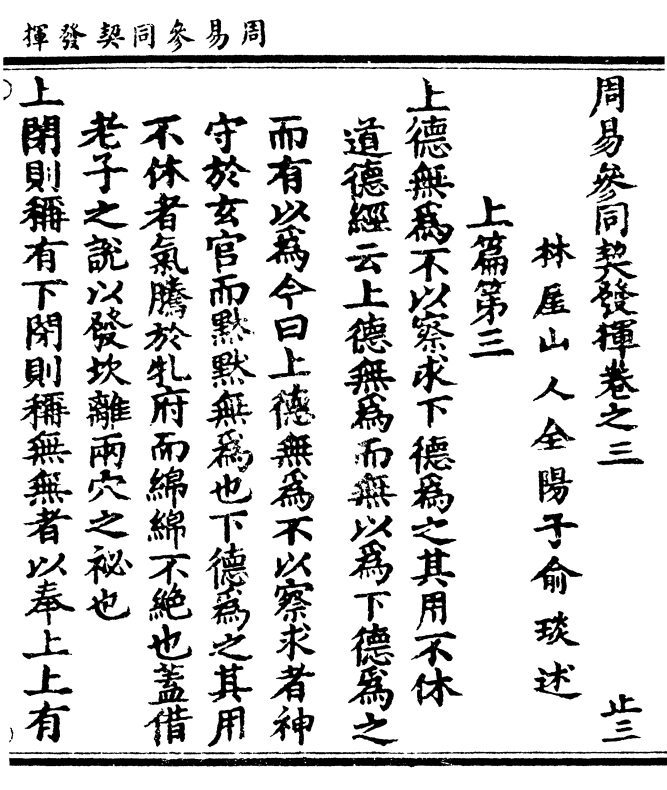 周易參同契發揮
周易參同契發揮卷之三
止三
林屋山人全陽子俞琰述
上篇第三
上德無為不以察求下德為之其用不休
道德經云上德無為而無以為下德為之
而有以為今曰上德無為不以察求者神
守於玄宮而默默無為也下德為之其用
不休者氣騰於牝府而綿綿不絕也蓋借
老子之說以發坎離兩穴之祕也
上閉則稱有下閉則稱無無者以奉上上有